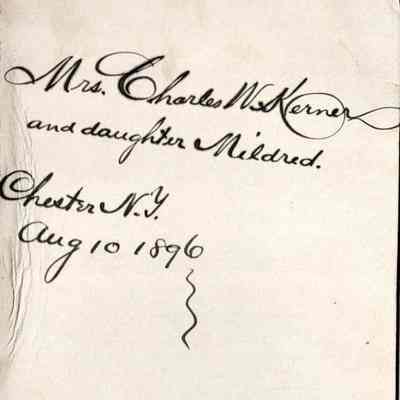 Mrs. Charles W. Kerner
and daughter Mildred.
Chester N.Y.
Aug 10 1896